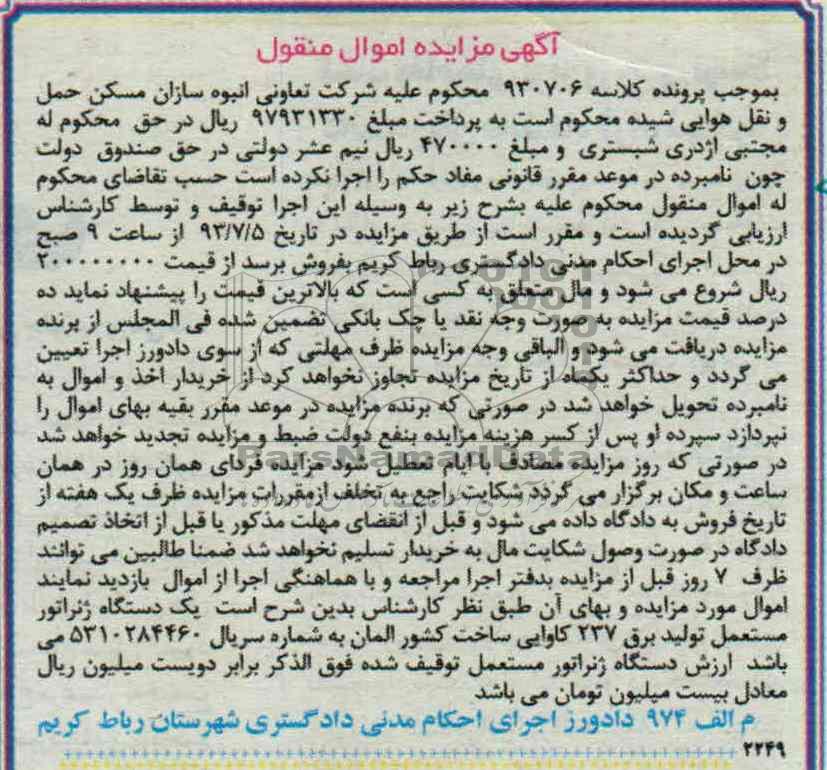 آگهی مزایده اموال منقول
بموجب پرونده کلاسه ۹۳۰۷۰۶ محکوم علیه شرکت تعاونی انبوه سازان مسکن حمل
و نقل هوایی شیده محکوم است به پرداخت مبلغ ۹۷۹۳۱۳۳۰ ریال در حق محکوم له
مجتبی اژدری شبستری و مبلغ ۴۷۰۰۰۰ ریال نیم عشر دولتی در حق صندوق دولت
چون نامبرده در موعد مقرر قانونی مفاد حکم را اجرا نکرده است حسب تقاضای محکوم
له اموال منقول محکوم علیه بشرح زیر به وسیله این اجرا توقیف و توسط کارشناس
ارزیابی گردیده است و مقرر است از طریق مزایده در تاریخ ۹۳/۷/۵ از ساعت ۹ صبح
در محل اجرای احکام مدنی دادگستری رباط کریم بفروش برسد از قیمت ۲۰۰۰۰۰۰۰۰
ریال شروع می شود و مال متعلق به کسی است که بالاترین قیمت را پیشنهاد نماید ده
درصد قیمت مزایده به صورت وجه نقد یا چک بانکی تضمین شده فی المجلس از برنده
مزایده دریافت می شود و الباقی وجه مزایده ظرف مهلتی که از سوی دادورز اجرا تعیین
می گردد و حداکثر یکماه از تاریخ مزایده تجاوز نخواهد کرد از خریدار اخذ و اموال به
نامبرده تحویل خواهد شد در صورتی که برنده مزایده در موعد مقرر بقیه بهای اموال را
نپردازد سپرده او پس از کسر هزینه مزایده بنفع دولت ضبط و مزایده تجدید خواهد شد
ParsNamadData
در صورتی که روز مزایده مصادف با ایام تعطیل شود مزایده فردای همان روز در همان
ساعت و مکان برگزار می گردد شکایت راجع به تخلف ازمقررات مزایده ظرف یک هفته از
تاریخ فروش به دادگاه داده می شود و قبل از انقضای مهلت مذکور یا قبل از اتخاذ تصمیم
دادگاه در صورت وصول شکایت مال به خریدار تسلیم نخواهد شد ضمنا طالبین می توانند
ظرف ۷ روز قبل از مزایده بدفتر اجرا مراجعه و با هماهنگی اجرا از اموال بازدید نمایند
اموال مورد مزایده و بهای آن طبق نظر کارشناس بدین شرح است یک دستگاه ژنراتور
مستعمل تولید برق ۲۳۷ کاوایی ساخت کشور المان به شماره سریال ۵۳۱۰۲۸۴۴۶۰ می
باشد ارزش دستگاه ژنراتور مستعمل توقیف شده فوق الذکر برابر دویست میلیون ریال
معادل بیست میلیون تومان می باشد
م الف ۹۷۴ دادورز اجرای احکام مدنی دادگستری شهرستان رباط کریم
۲۲۴۹